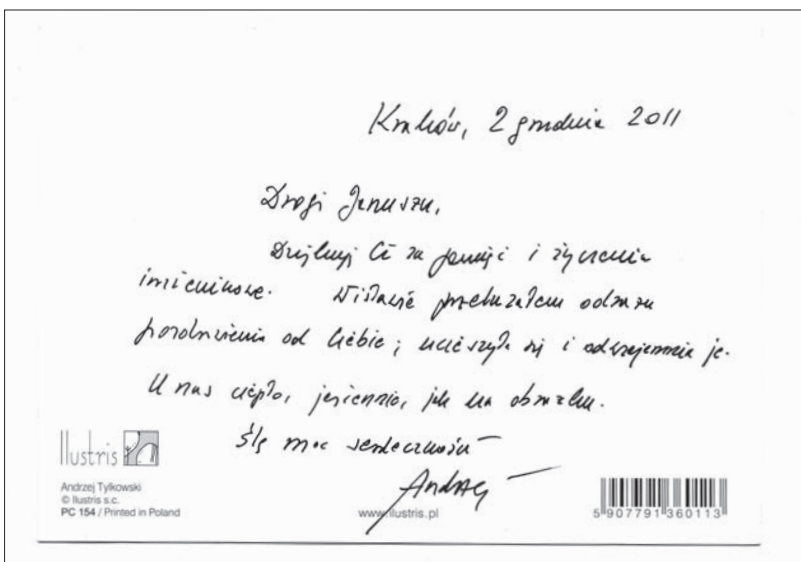 Kraków, 2 grudnia 2011
Drogi Januszu,
Dziękuję Ci za pamięć i życzenia
imieninowe. Wisławie przekazałem od razu
pozdrowienia od Ciebie; ucieszyła się i odwzajemnia je.
U nas ciepło, jesiennie, jak na obrazku.
Ślę moc serdeczności
Andrzej
Ilustris
Andrzej Tylkowski
© Ilustris s.c.
PC 154 / Printed in Poland
www.ilustris.pl
5 907791 360113